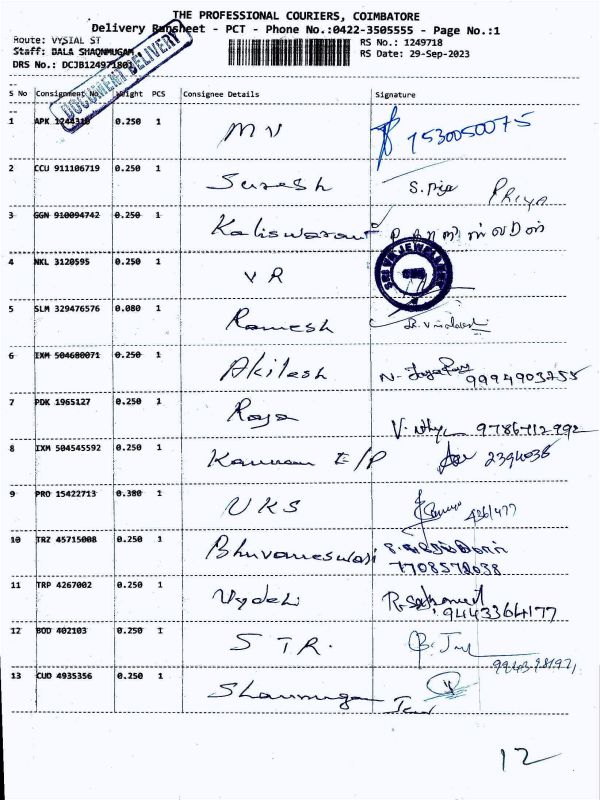 THE PROFESSIONAL COURIERS, COIMBATORE
Delivery Runsheet - PCT - Phone No.:0422-3505555 - Page No.:1
Route: VYSIAL ST RS No.: 1249718
Staff: BALA SHAQNMUGAM RS Date: 29-Sep-2023
DRS No.: DCJB124971801
DOCUMENT DELIVERY
S No Consignment No Weight PCS Consignee Details Signature
1 APK 1244318 0.250 1 M V 7530050075
2 CCU 911106719 0.250 1 Suresh S. Priya PRIYA
3 GGN 910094742 0.250 1 Kaliswaran
4 NKL 3120595 0.250 1 V R
SRI VR JEWELLERS
5 SLM 329476576 0.080 1 Ramesh
6 IXM 504600071 0.250 1 Akilesh 9994903255
7 PDK 1965127 0.250 1 Raja 9786712992
8 IXM 504545592 0.250 1 Kannan E/P 2394036
9 PRO 15422713 0.380 1 UKS 426/477
10 TRZ 45715008 0.250 1 Bhuvaneswari
7708572038
11 TRP 4267002 0.250 1 Vydehi
9443364177
12 BOD 402103 0.250 1 STR.
13 CUD 4935356 0.250 1 Shanmugam
12